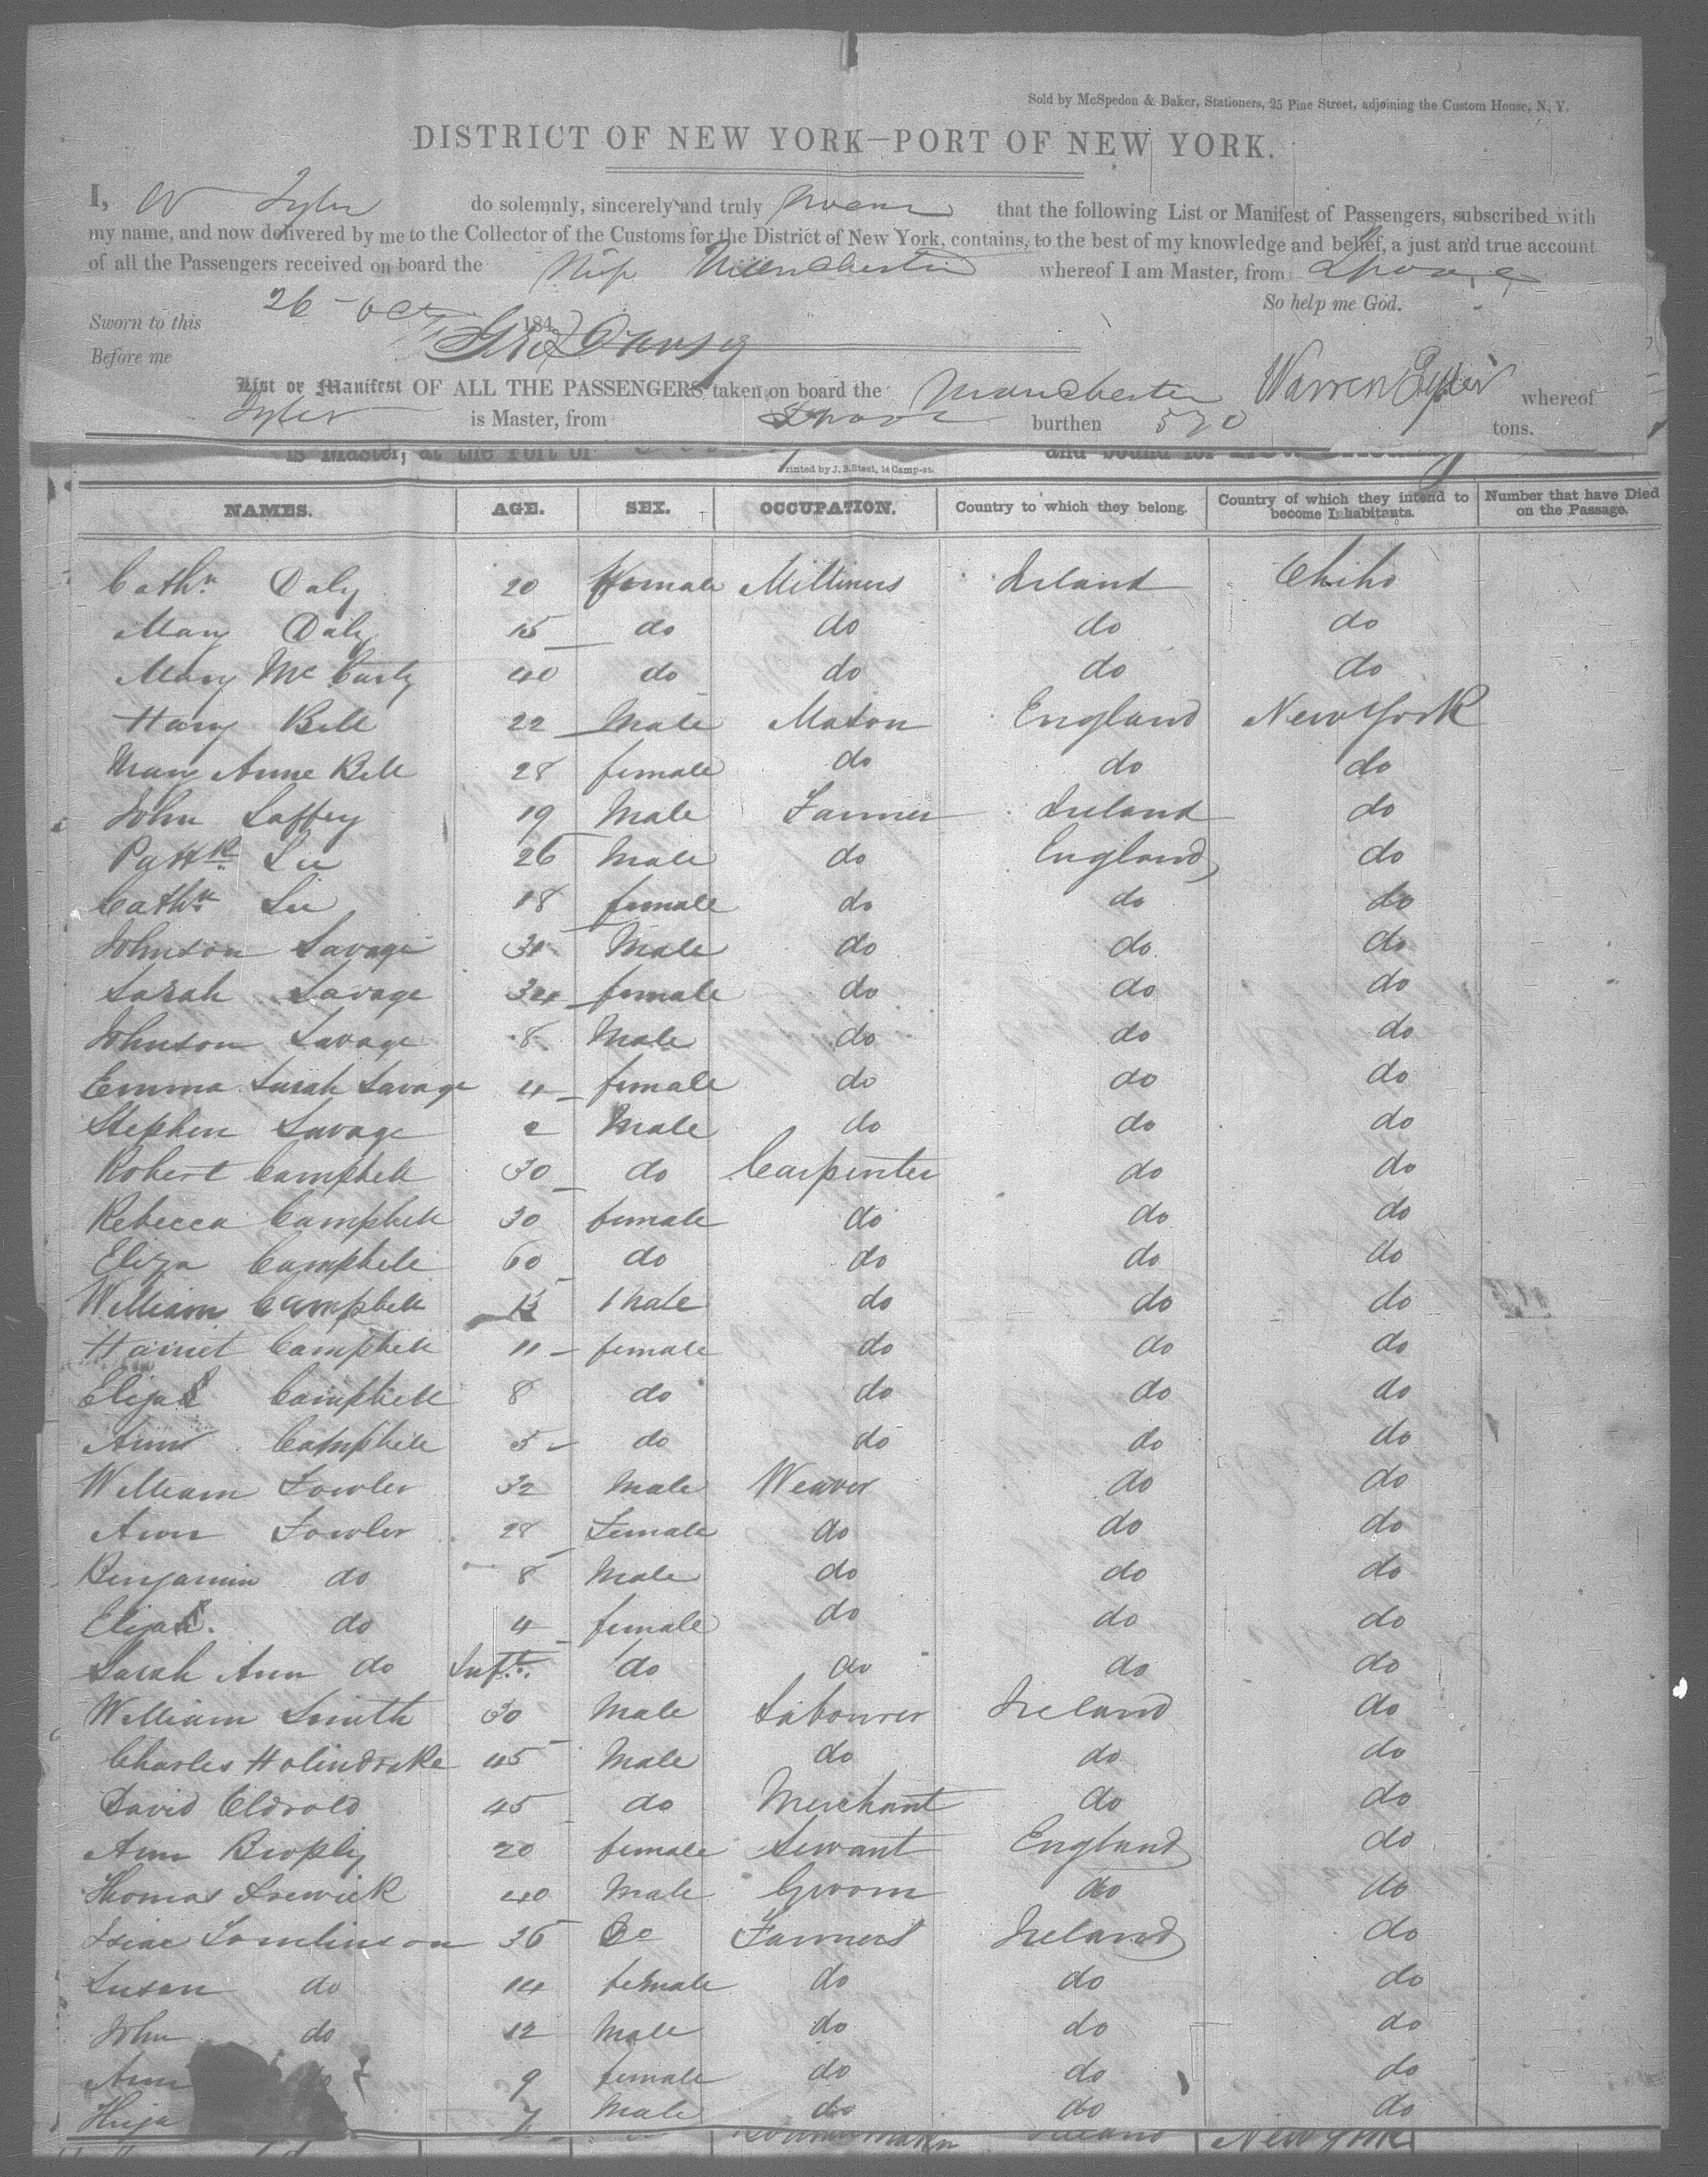 Sold by McSpedon & Baker, Stationers, 25 Pine Street, adjoining the Custom House, N. Y.
DISTRICT OF NEW YORK—PORT OF NEW YORK.
I, W Tyler do solemnly, sincerely and truly swear that the following List or Manifest of Passengers, subscribed with
my name, and now delivered by me to the Collector of the Customs for the District of New York, contains, to the best of my knowledge and belief, a just and true account
of all the Passengers received on board the Ship Manchester whereof I am Master, from
So help me God.
Sworn to this 26 - Oct 184
Before me
List or Manifest OF ALL THE PASSENGERS taken on board the Manchester Warren Tyler whereof
Tyler is Master, from burthen 570 tons.
is Master, at the Port of and bound for
Printed by J. B. Steel, 14 Camp-st.
NAMES. AGE. SEX. OCCUPATION. Country to which they belong. Country of which they intend to become Inhabitants. Number that have Died on the Passage.
Cathn Daly 20 female Milliners Ireland
Mary Daly 15 do do do do
Mary McCarty 40 do do do do
Harry Bell 22 Male Mason England New York
Mary Anne Bell 28 female do do do
John Laffey 19 Male Farmer Ireland do
Pattk Lee 26 Male do England do
Cathn Lee 18 female do do do
Johnson Savage Male do do do
Sarah Savage 34 female do do do
Johnson Savage 8 Male do do do
Emma Sarah Savage 4 female do do do
Stephen Savage 2 Male do do do
Robert Campbell 30 do Carpenter do do
Rebecca Campbell 30 female do do do
Eliza Campbell 60 do do do do
William Campbell 13 Male do do do
Harriet Campbell 11 female do do do
Campbell 8 do do do do
Ann Campbell 5 do do do do
William Fowler 32 Male Weaver do do
Ann Fowler 28 Female do do do
Benjamin do 8 Male do do do
do 4 female do do do
Sarah Ann do Inft. do do do do
William Smith 30 Male Labourer Ireland do
Charles Holindrake 45 Male do do do
David Oldrold 45 do Merchant do do
Ann Brophy 20 female Servant England do
Thomas Trewick 40 Male Groom do do
Isiac Tomlinson 36 Do Farmers Ireland do
Susan do 14 female do do do
John do 12 Male do do do
Ann do 9 female do do do
7 Male do do do
Ireland New York